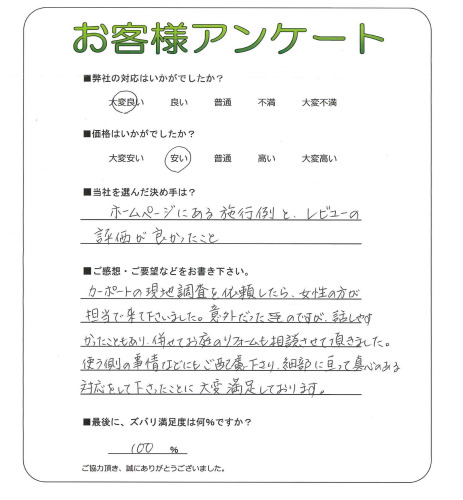 お客様アンケート
■弊社の対応はいかがでしたか？
大変良い 良い 普通 不満 大変不満
■価格はいかがでしたか？
大変安い 安い 普通 高い 大変高い
■当社を選んだ決め手は？
ホームページにある施行例と、レビューの
評価が良かったこと
■ご感想・ご要望などをお書き下さい。
カーポートの現地調査を依頼したら、女性の方が
担当で来て下さいました。意外だったのですが、話しやす
かったこともあり、併せてお庭のリフォームも相談させて頂きました。
使う側の事情などにもご配慮下さり、細部に亘って真心のある
対応をして下さったことに大変満足しております。
■最後に、ズバリ満足度は何％ですか？
100 ％
ご協力頂き、誠にありがとうございました。